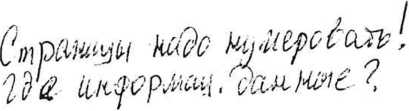 Страницы надо нумеровать!
Где информац. данные?